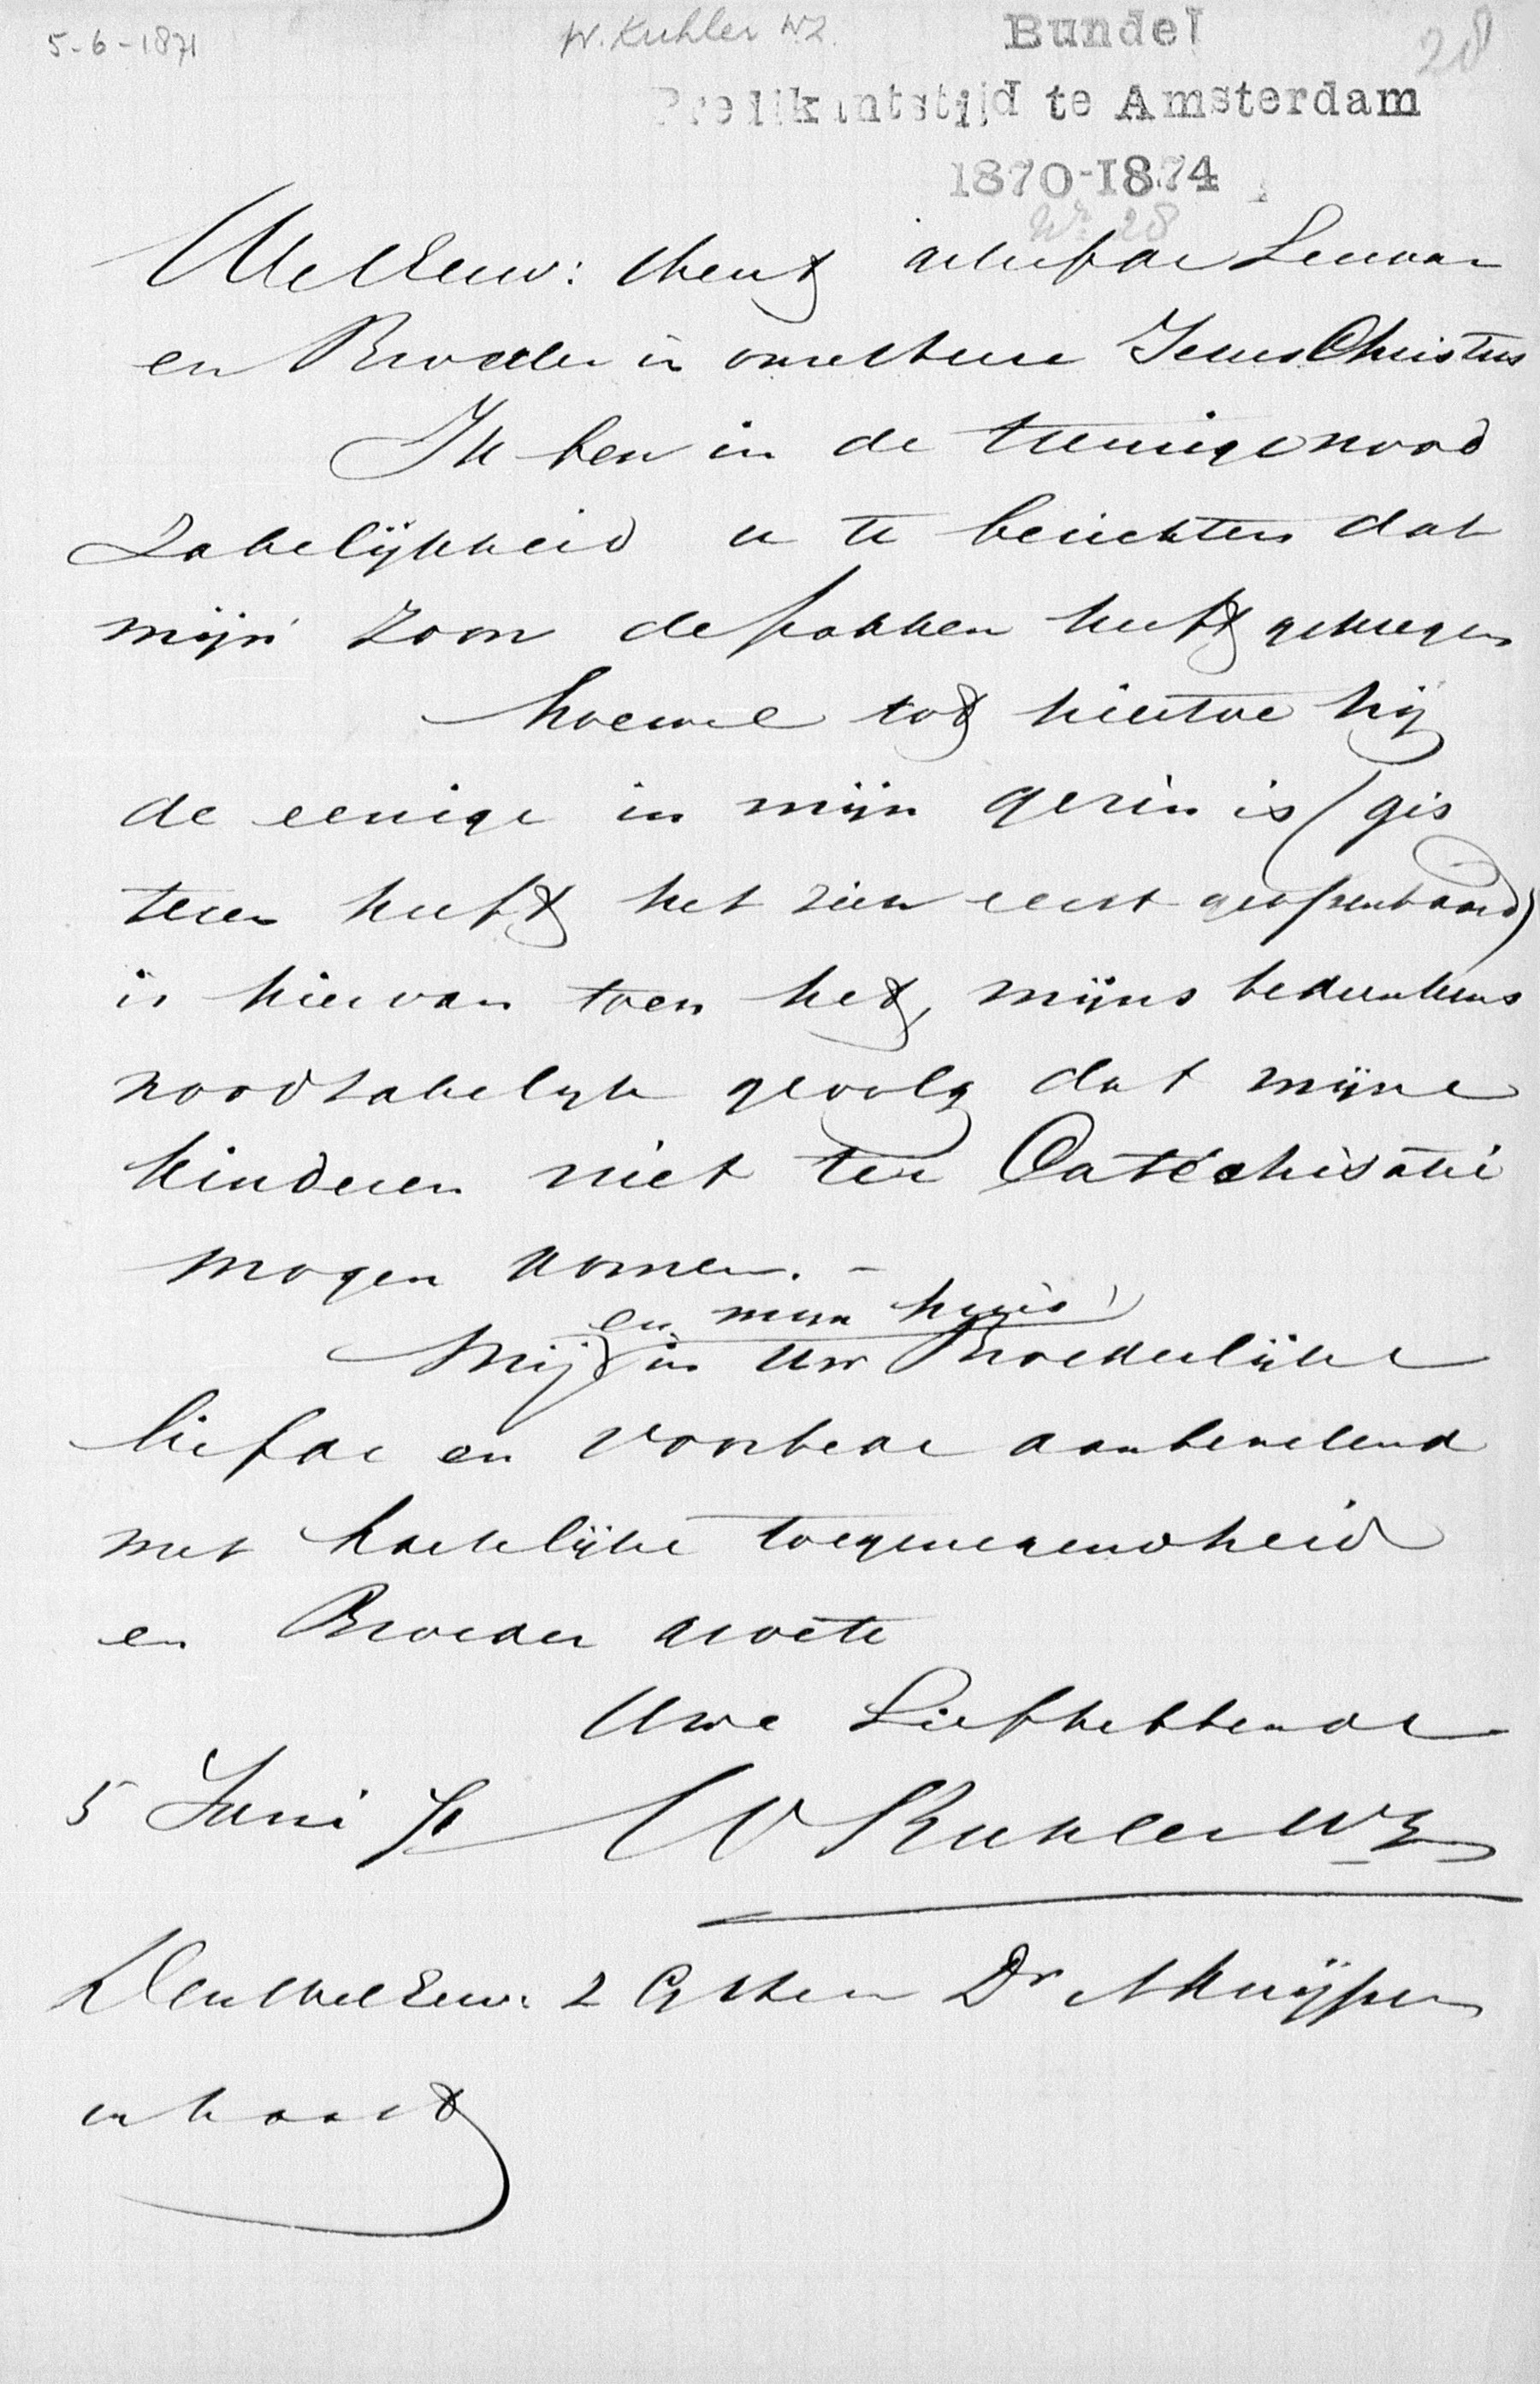 5-6-1871
W. Kuhler WZ.
28
Bundel
Predikantstijd te Amsterdam
1870-1874
No 28
WelEerw: Heer geliefde Leeraar
en Broeder in onze Heere Jezus Christus
Ik ben in de treurige nood
zakelijkheid u te berichten dat
mijn zoon de pokken heeft gekregen
hoewel tot hiertoe hij
de eenige in mijn gezin is (gis
teren heeft het zich eerst geopenbaard)
is hiervan toch het, mijns bedenkens
noodzakelijk gevolg dat mijne
kinderen niet ter Catechisatie
mogen komen. -
en mijn huis
Mij in Uw Broederlijke
liefde en voorbede aanbevelend
met hartelijke toegenegenheid
en Broeder groete
Uwe Liefhebbende
5 Juni 71 W Kuhler WZ
Den WelEerw: Z G Heer Dr A Kuijper